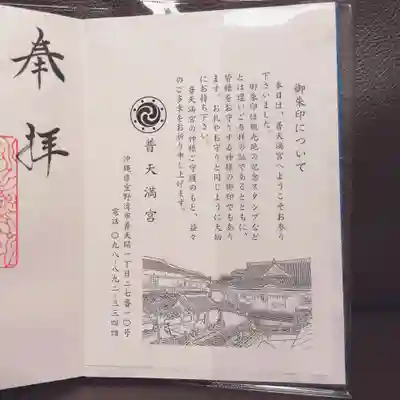 奉拝
御朱印について
本日は、普天満宮へようこそお参り
下さいました。
御朱印は観光地の記念スタンプなど
とは違いご参拝の証であるとともに、
皆様をお守りする神様の御印でもあり
ます。お札やお守りと同じように大切
にお持ち下さい。
普天満宮の神様ご守護のもと、益々
のご多幸をお祈り申し上げます。
普天満宮
沖縄県宜野湾市普天間一丁目二七番一〇号
電話 〇九八-八九二-三三四四